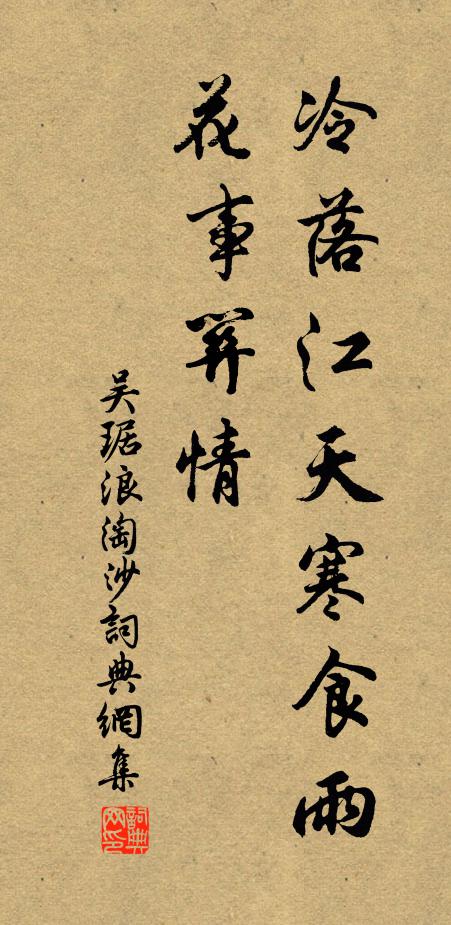 冷落江天寒食雨
花事关情
吳琚浪淘沙詞典網集
詞典网印